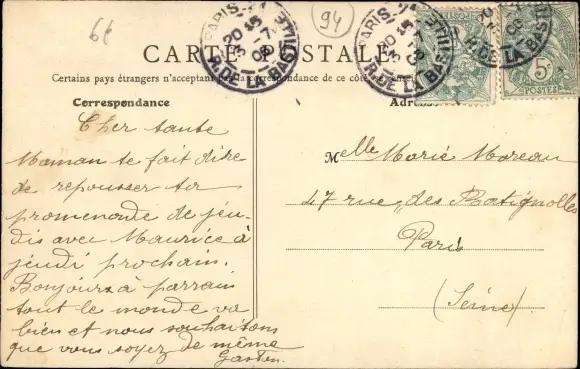 6€
94
PARIS
20 45
3-7
08
R. DE LA BASTILLE
CARTE POSTALE
Certains pays étrangers n'acceptent pas la correspondance de ce côté
Correspondance
Adresse
5c
POSTES
Cher tante
Maman te fait dire
de repousser ta
promenade de jeu-
dis avec Maurice à
jeudi prochain.
Bonjours à parrain
tout le monde va
bien et nous souhaitons
que vous soyez de même
Gaston.
Melle Marie Moreau
47 rue des Batignolles
Paris
(Seine)